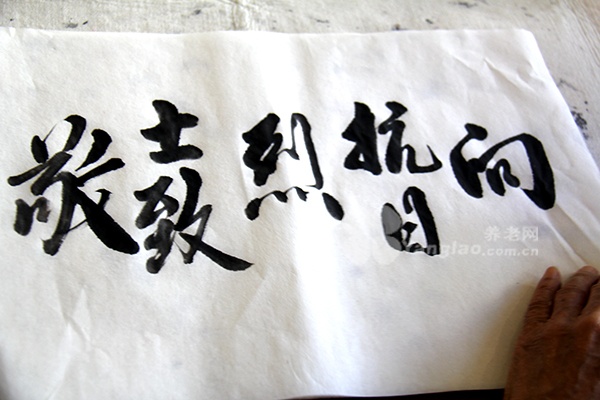 向抗日烈士致敬
养老网
Yanglao.com.cn